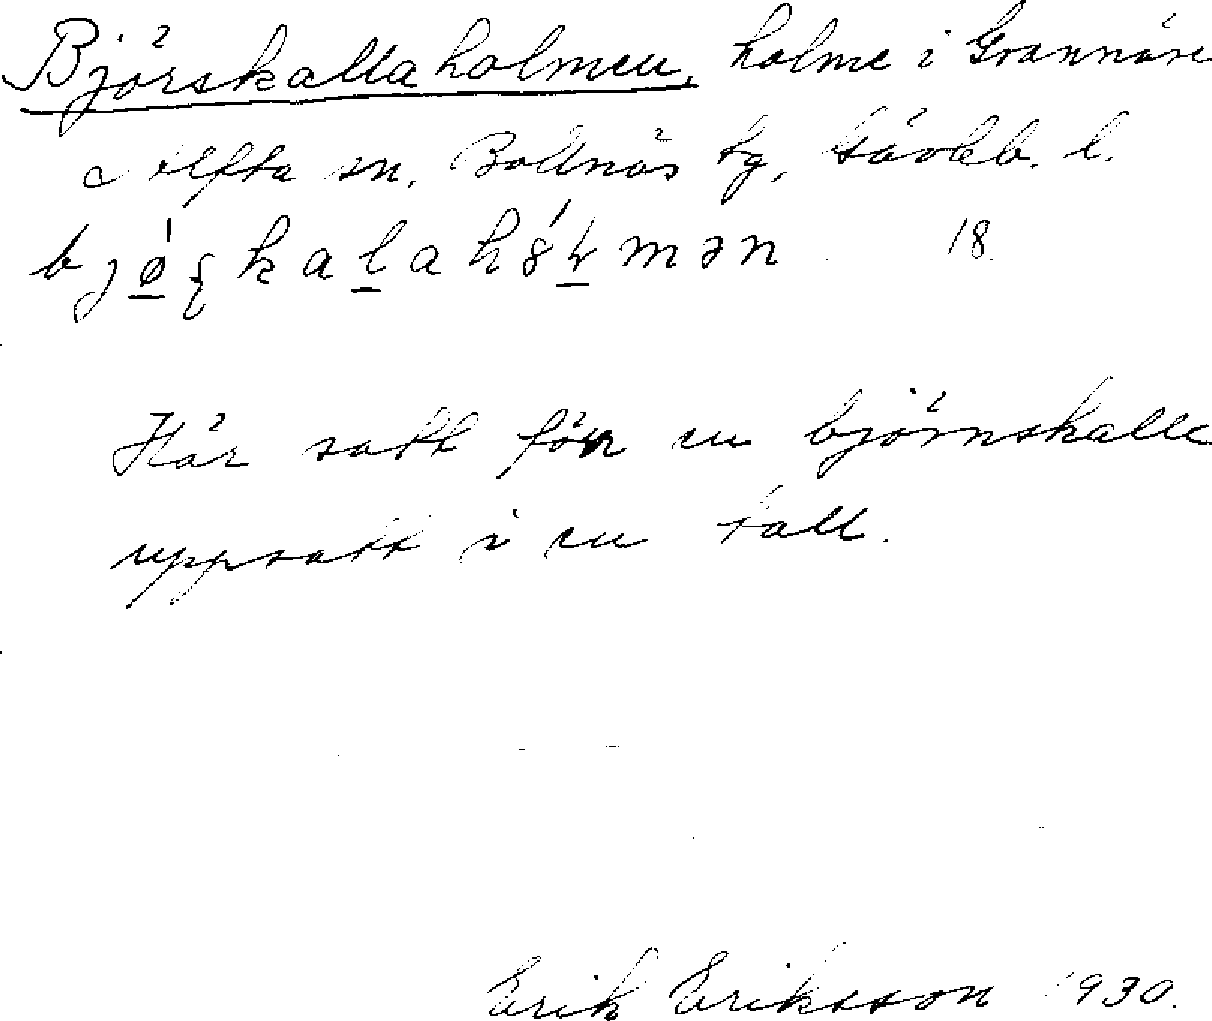 Björskallaholmen, holme i Grannäre
Alfta sn. Bollnäs tg, Gävleb. l.
18.
Här satt förr en björnskalle
uppsatt i en tall.
Erik Eriksson 1930.